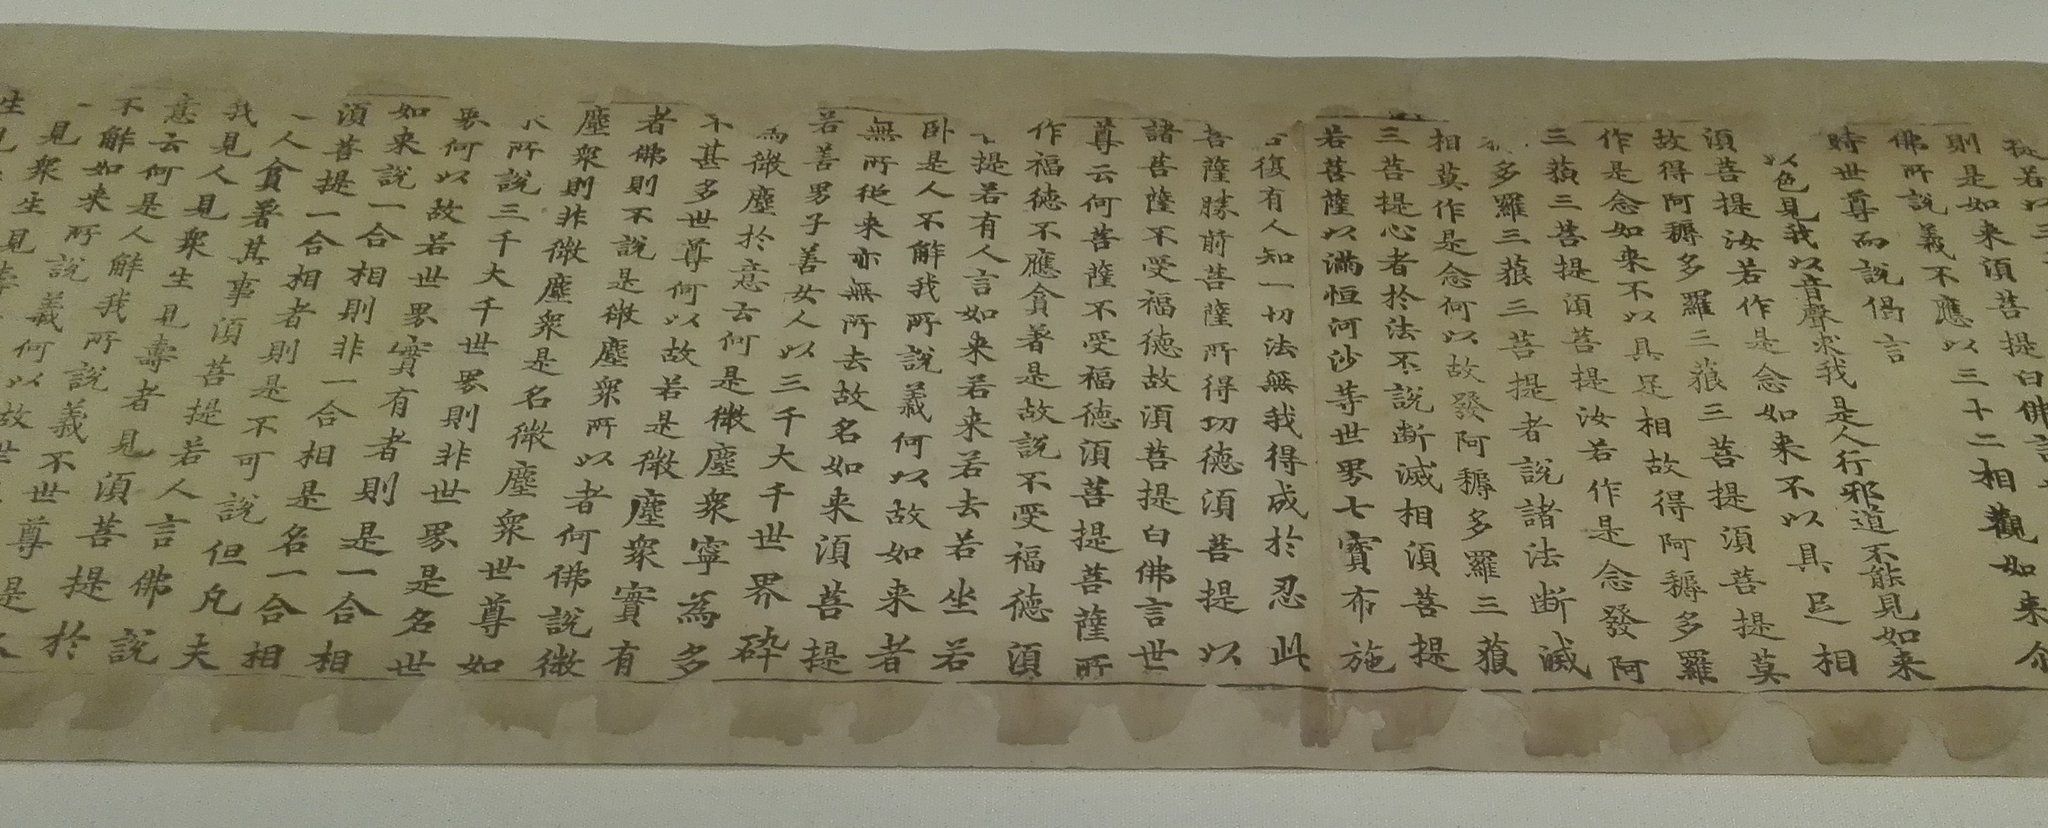 提若以三
則是如来須菩提白佛言
佛所說義不應以三十二相觀如来尒
時世尊而說偈言
以色見我以音聲求我是人行邪道不能見如来
須菩提汝若作是念如来不以具足相
故得阿耨多羅三藐三菩提須菩提莫
作是念如来不以具足相故得阿耨多羅
三藐三菩提須菩提汝若作是念發阿
多羅三藐三菩提者說諸法断滅
相莫作是念何以故發阿耨多羅三藐
三菩提心者於法不說断滅相須菩提
若菩薩以滿恒河沙等世界七寶布施
復有人知一切法無我得成於忍此
菩薩勝前菩薩所得功德須菩提以
諸菩薩不受福德故須菩提白佛言世
尊云何菩薩不受福德須菩提菩薩所
作福德不應貪著是故說不受福德須
提若有人言如来若来若去若坐若
卧是人不解我所說義何以故如来者
無所從来亦無所去故名如来須菩提
若善男子善女人以三千大千世界碎
為微塵於意云何是微塵衆寧為多
不甚多世尊何以故若是微塵衆實有
者佛則不說是微塵衆所以者何佛說微
塵衆則非微塵衆是名微塵衆世尊如
来所說三千大千世界則非世界是名世
界何以故若世界實有者則是一合相
如来說一合相則非一合相是名一合相
須菩提一合相者則是不可說但凡夫
之人貪著其事須菩提若人言佛說
我見人見衆生見壽者見須菩提於
意云何是人解我所說義不世尊是
不解如来所說義何以故世
見衆生見
生見